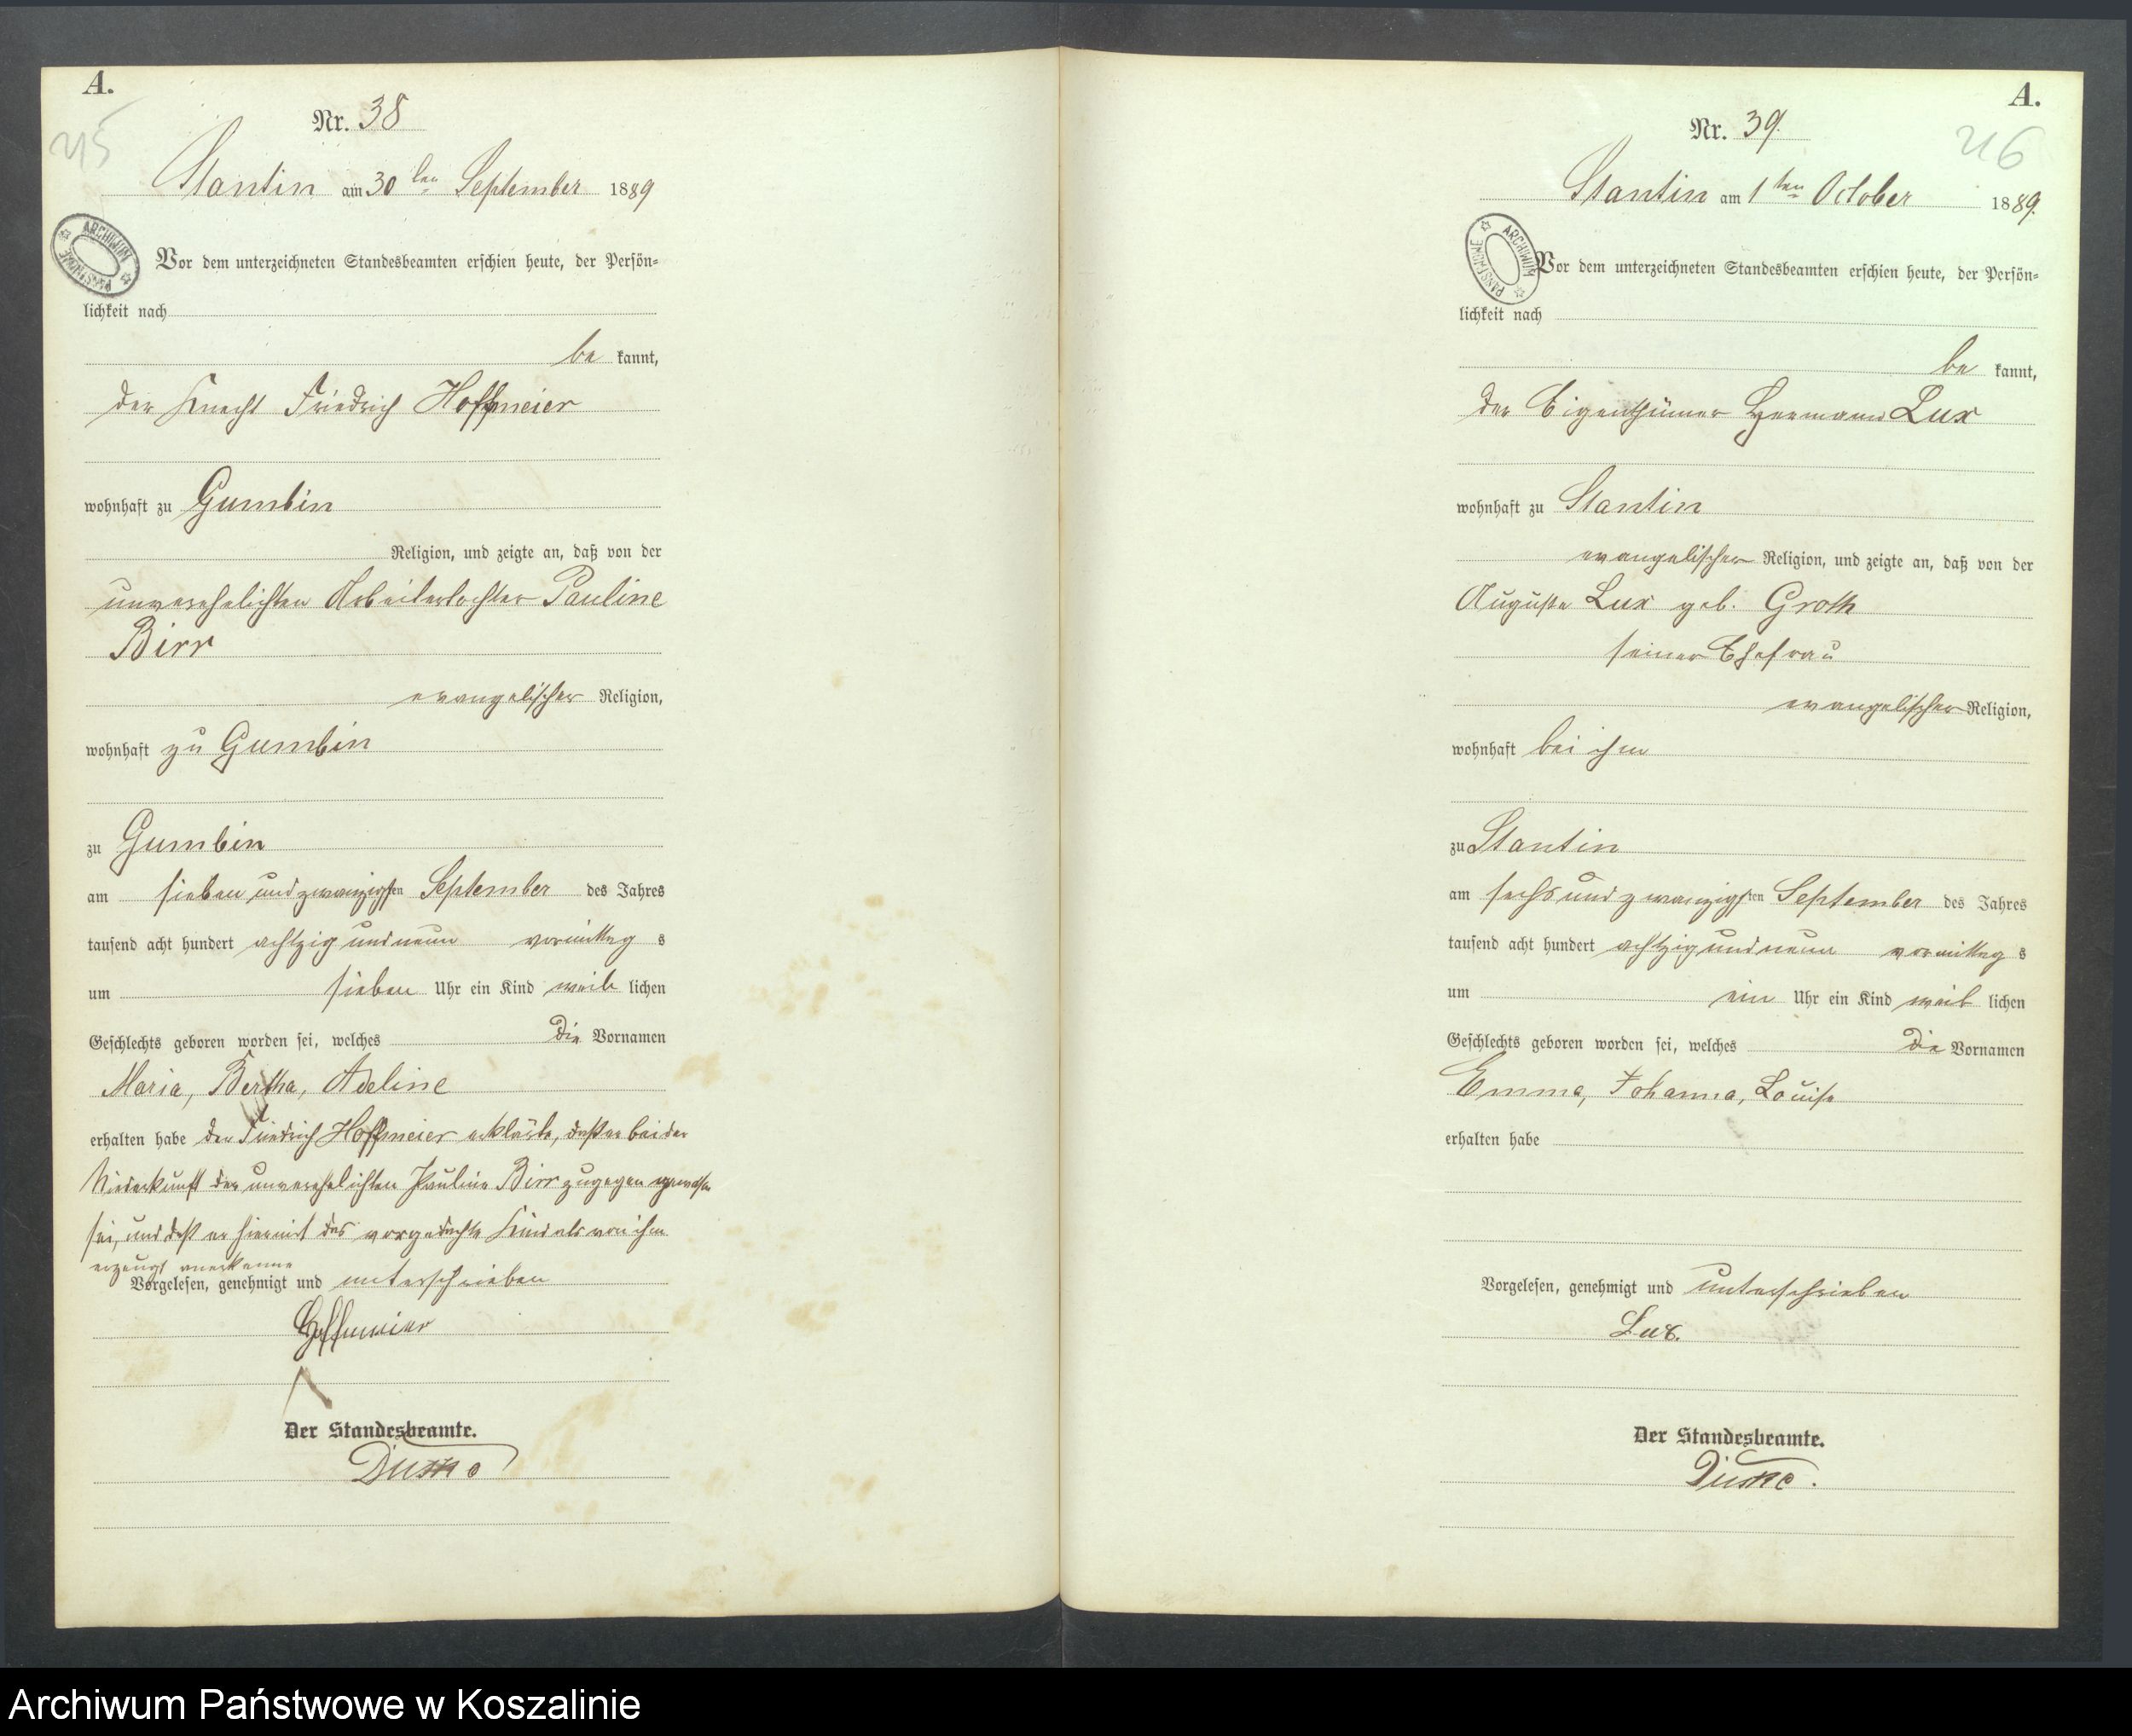 A.
215
Nr. 38
Stantin am 30 ten September 1889
ARCHIWUM PAŃSTWOWE
Vor dem unterzeichneten Standesbeamten erschien heute, der Persön-
lichkeit nach
be kannt,
der Knecht Friedrich Hoffmeier
wohnhaft zu Gumbin
Religion, und zeigte an, daß von der
unverehelichten Arbeitertochter Pauline
Birr
evangelischer Religion,
wohnhaft zu Gumbin
zu Gumbin
am sieben und zwanzigsten September des Jahres
tausend acht hundert achtzig und neun vormittag s
um sieben Uhr ein Kind weib lichen
Geschlechts geboren worden sei, welches die Vornamen
Maria, Bertha, Adeline
erhalten habe der Friedrich Hoffmeier erklärte, daß er bei der
Niederkunft der unverehelichten Pauline Birr zugegen gewesen
sei, und daß er hiermit das vorgedachte Kind als von ihm
erzeugt anerkenne
Vorgelesen, genehmigt und unterschrieben
Hoffmeier
Der Standesbeamte.
A.
216
Nr. 39.
Stantin am 1 ten October 1889.
ARCHIWUM PAŃSTWOWE
Vor dem unterzeichneten Standesbeamten erschien heute, der Persön-
lichkeit nach
be kannt,
der Eigenthümer Hermann Lux
wohnhaft zu Stantin
evangelischer Religion, und zeigte an, daß von der
Auguste Lux geb. Groth
seiner Ehefrau
evangelischer Religion,
wohnhaft bei ihm
zu Stantin
am sechs und zwanzigsten September des Jahres
tausend acht hundert achtzig und neun vormittag s
um ein Uhr ein Kind weib lichen
Geschlechts geboren worden sei, welches die Vornamen
Emma, Johanna, Louise
erhalten habe
Vorgelesen, genehmigt und unterschrieben
Lux.
Der Standesbeamte.
Archiwum Państwowe w Koszalinie